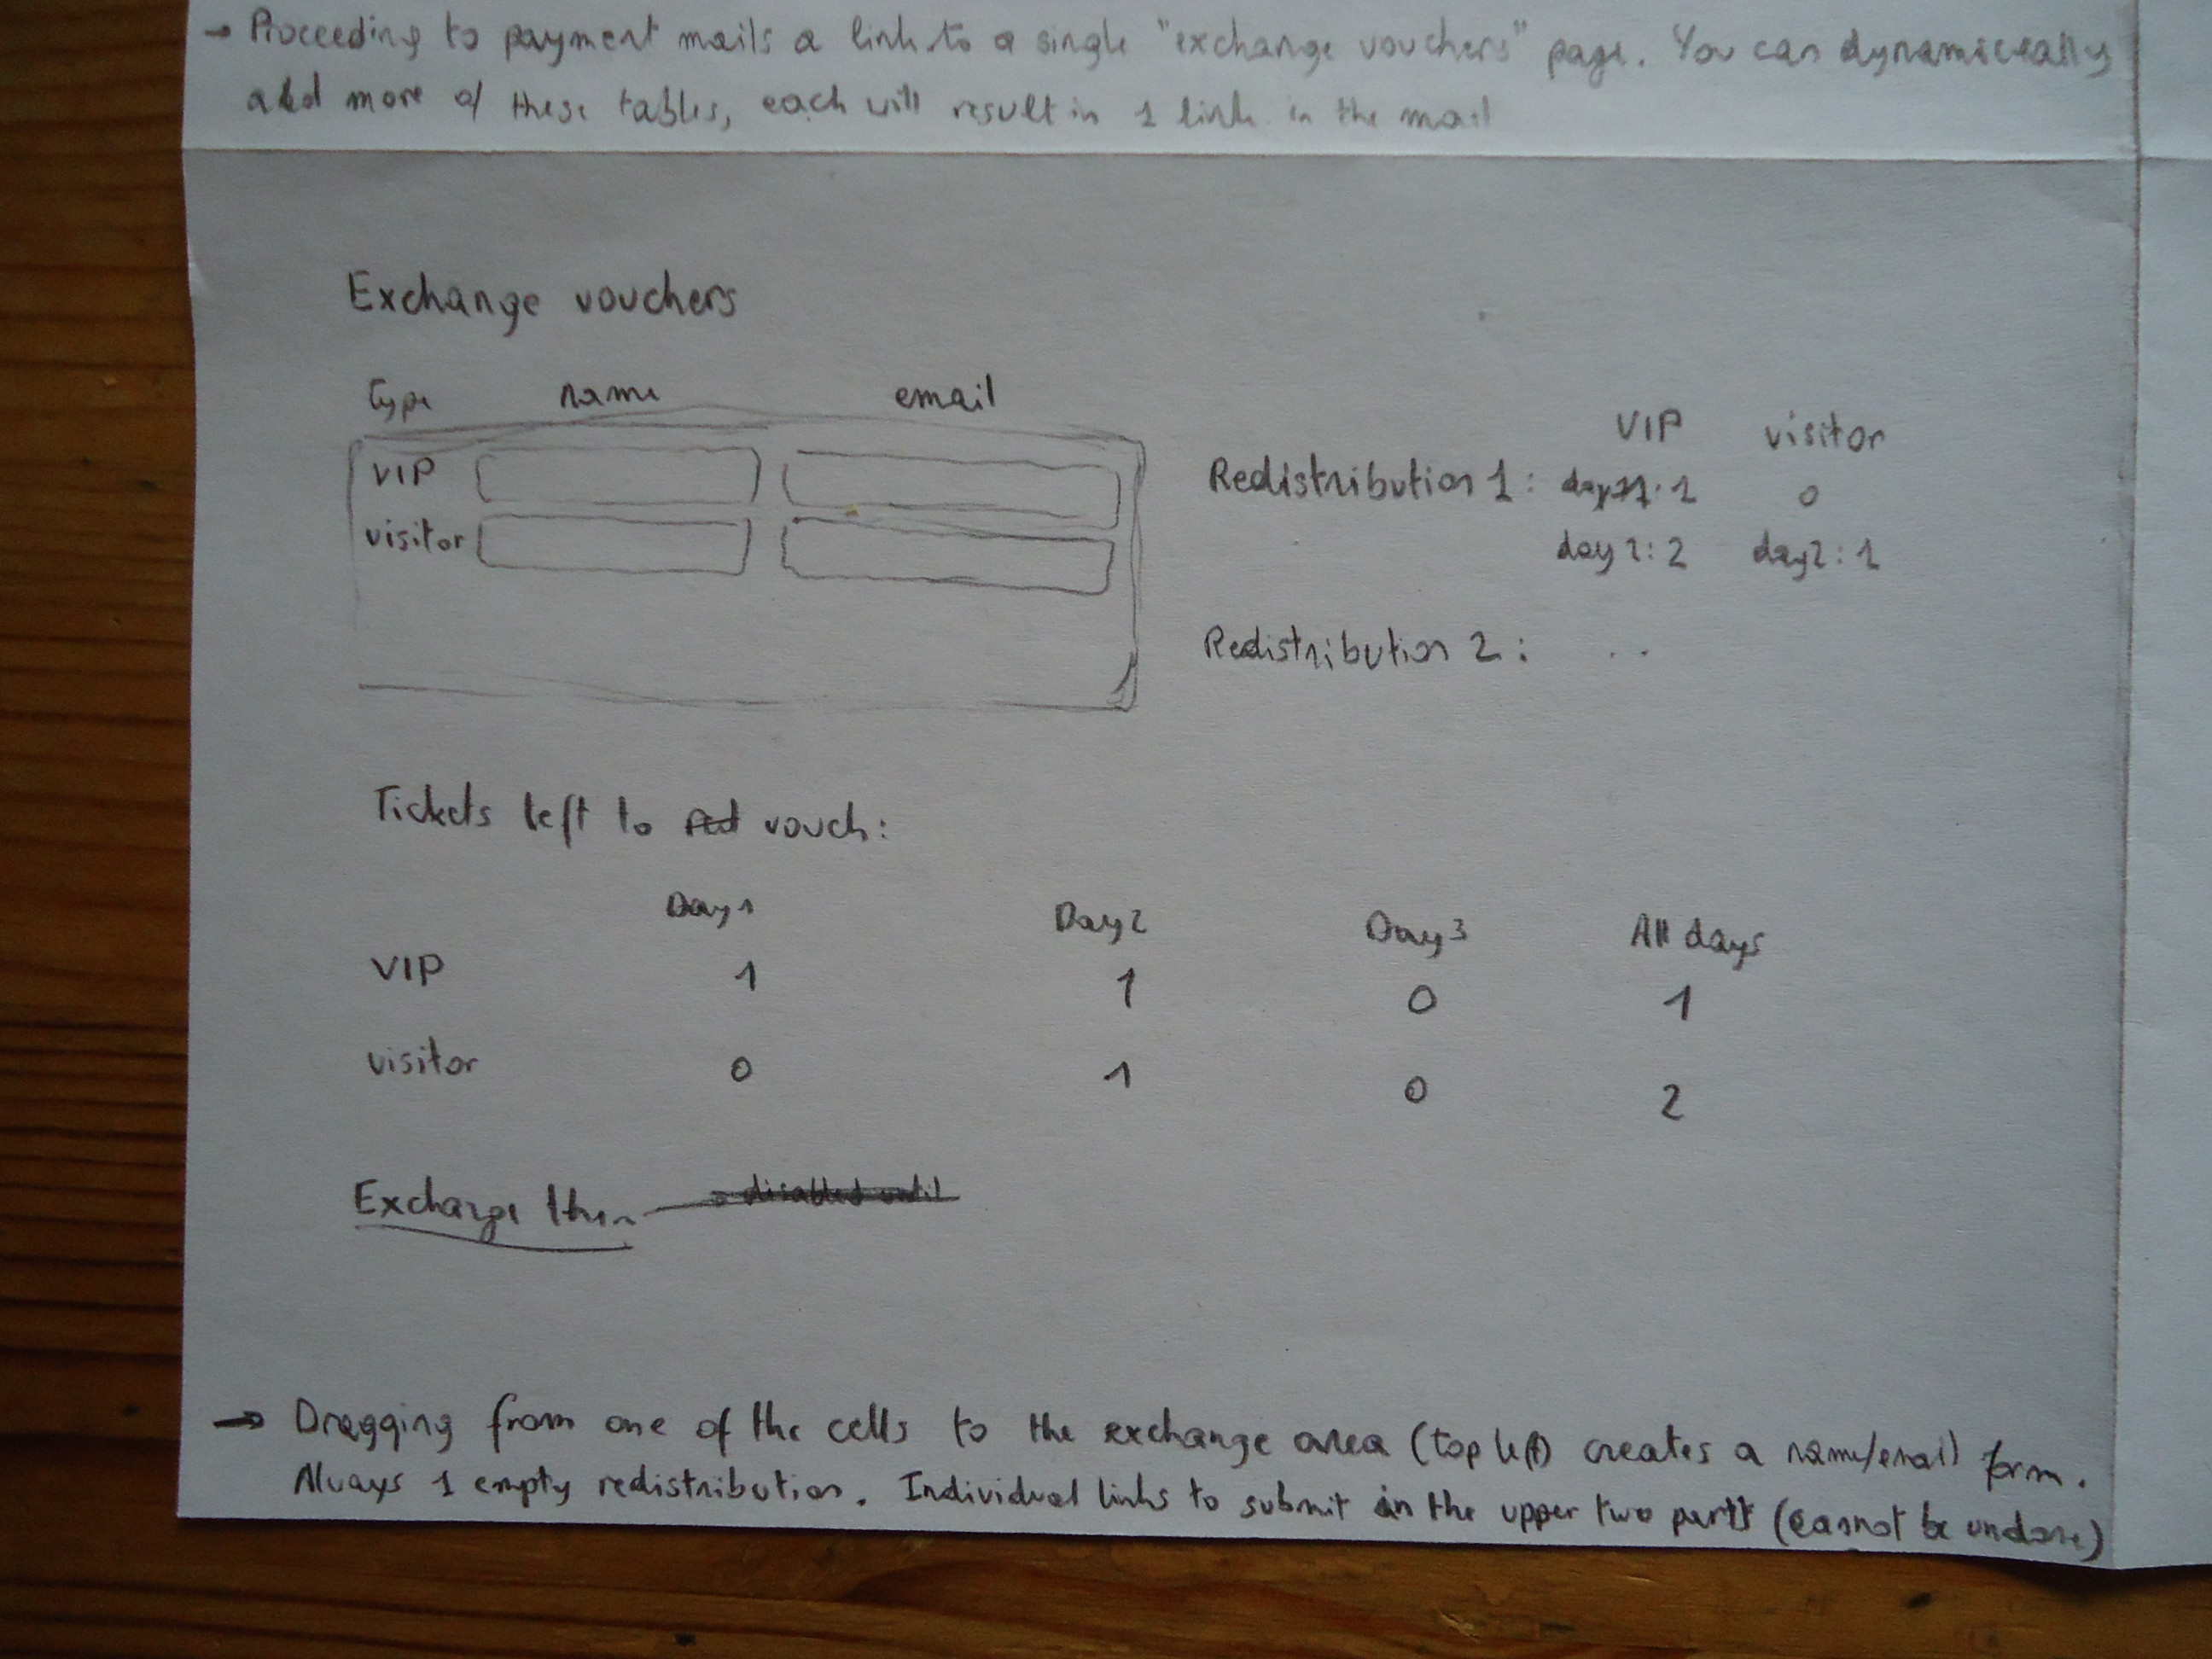 → Proceeding to payment mails a link to a single "exchange vouchers" page. You can dynamiceally
add more of these tables, each will result in 1 link in the mail
Exchange vouchers
Type name email
VIP
visitor
VIP visitor
Redistribution 1: day 1: 1 0
day 2: 2 day2: 1
Redistribution 2: ..
Tickets left to red vouch:
Day 1 Day 2 Day 3 All days
VIP 1 1 0 1
visitor 0 1 0 2
Exchange them → disabled until
→ Dragging from one of the cells to the exchange area (top left) creates a name/email form.
Always 1 empty redistribution. Individual links to submit in the upper two parts (cannot be undone)